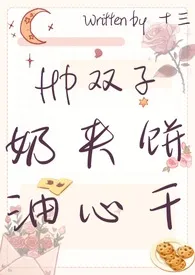 Written by 十三
帅双子
奶夹饼
油心千